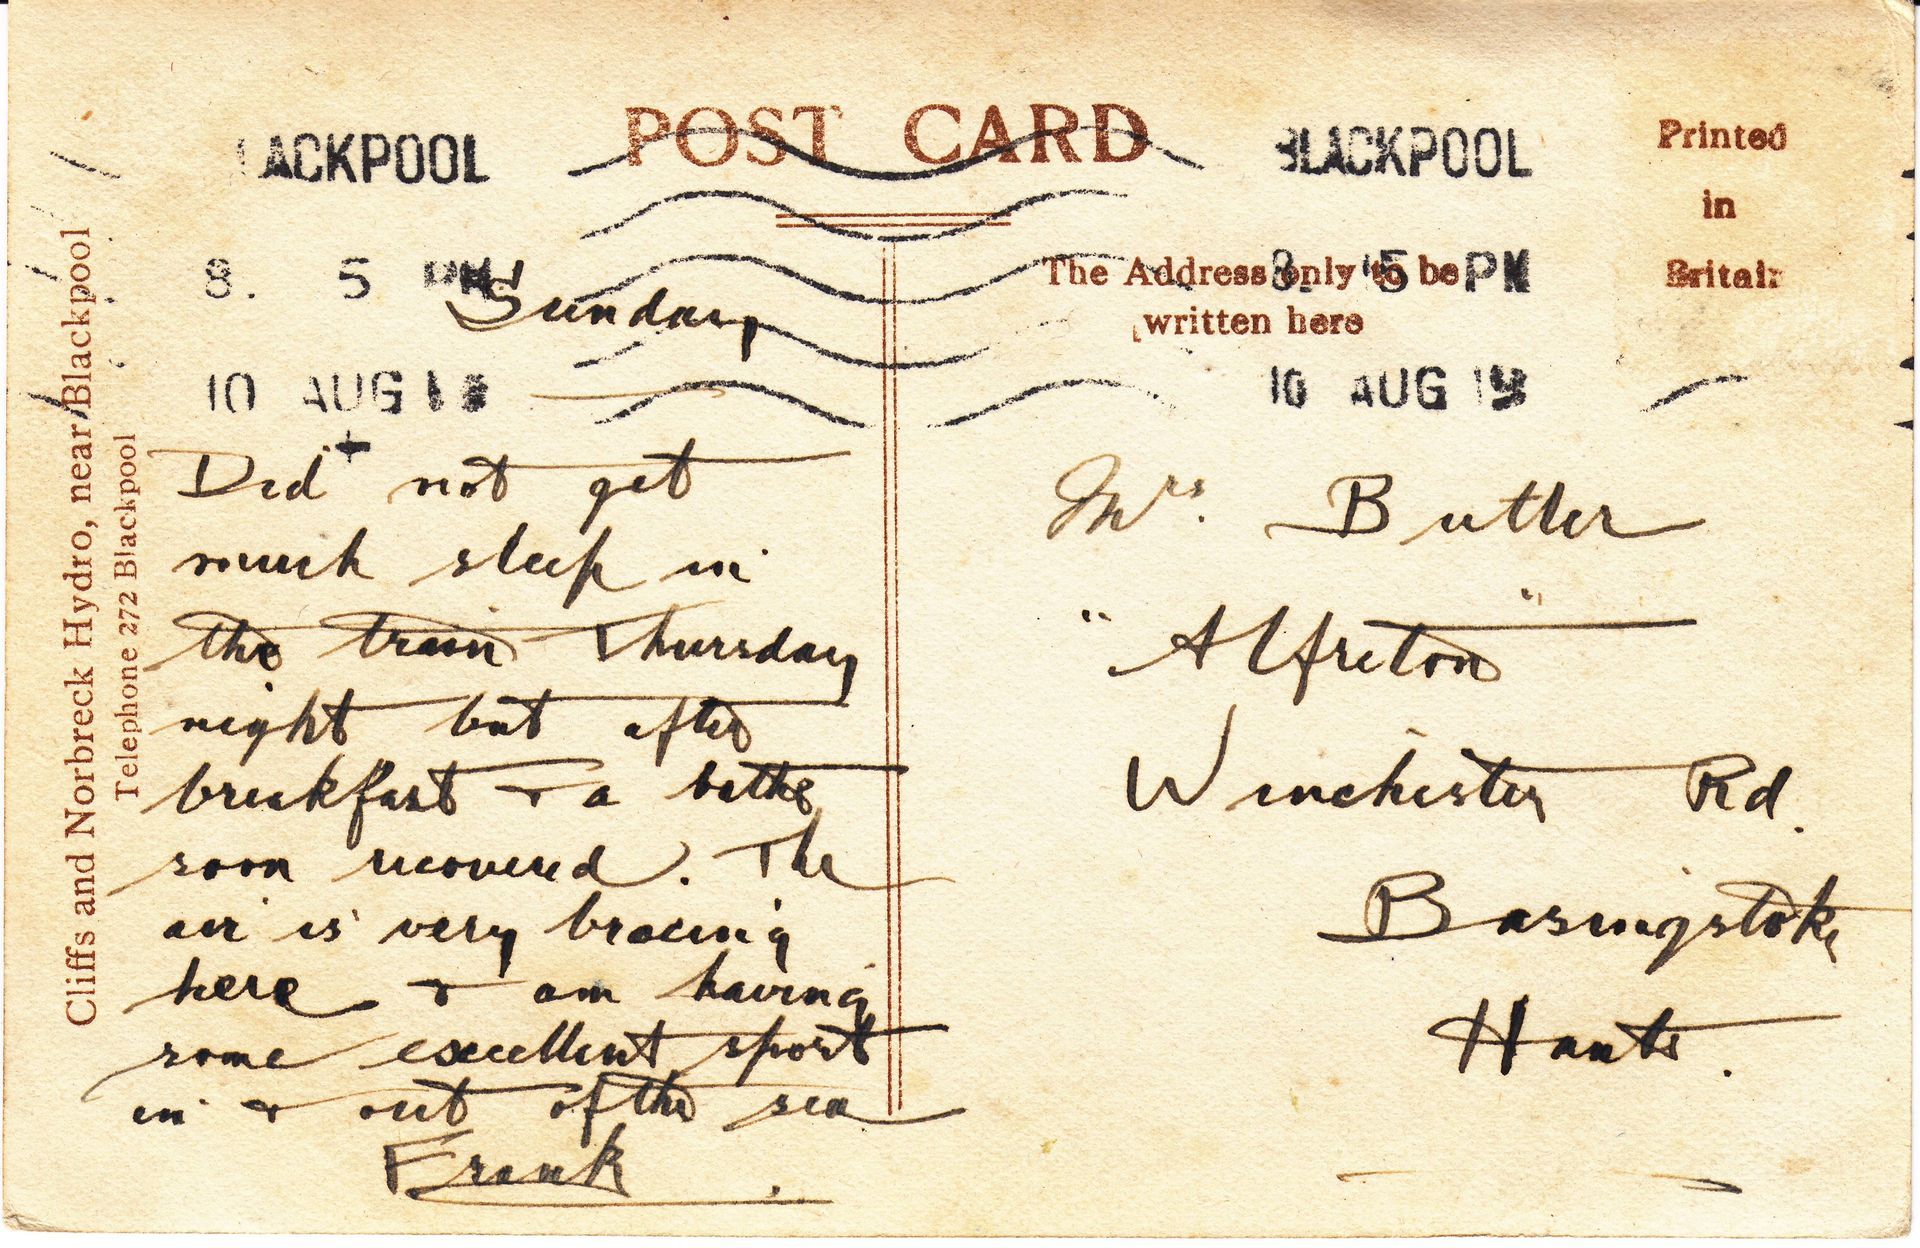 POST CARD
LACKPOOL
BLACKPOOL
Printed
in
Britain
8. 5 PM
8. 15 PM
The Address only to be
written here
10 AUG
10 AUG
Cliffs and Norbreck Hydro, near Blackpool
Telephone 272 Blackpool
Sunday
Did not get
much sleep in
the train Thursday
night but after
breakfast & a bathe
soon recovered. The
air is very bracing
here & am having
some excellent sport
in & out of the sea
Frank
Mrs. Butler
"Alfreton"
Winchester Rd.
Basingstoke
Hants.